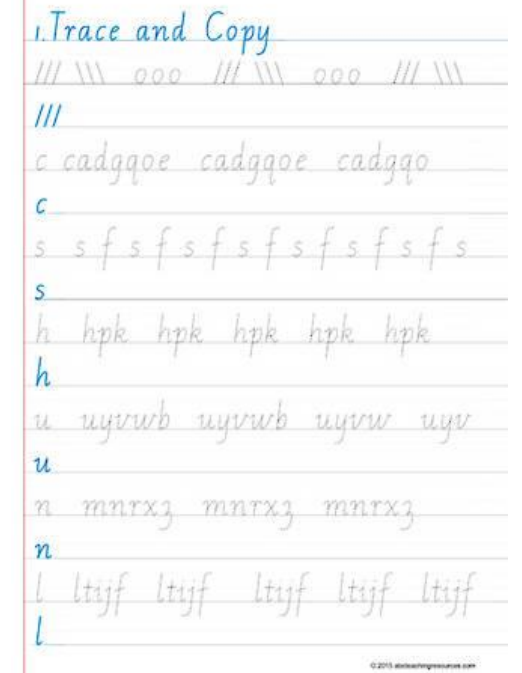 1.Trace and Copy
/// \\\ ooo /// \\\ ooo /// \\\
///
c cadgqoe cadgqoe cadgqo
c
s s f s f s f s f s f s f s f s
s
h hpk hpk hpk hpk hpk
h
u uyvwb uyvwb uyvw uyv
u
n mnrxz mnrxz mnrxz
n
l ltijf ltijf ltijf ltijf ltijf
l
© 2015 abcteachingresources.com